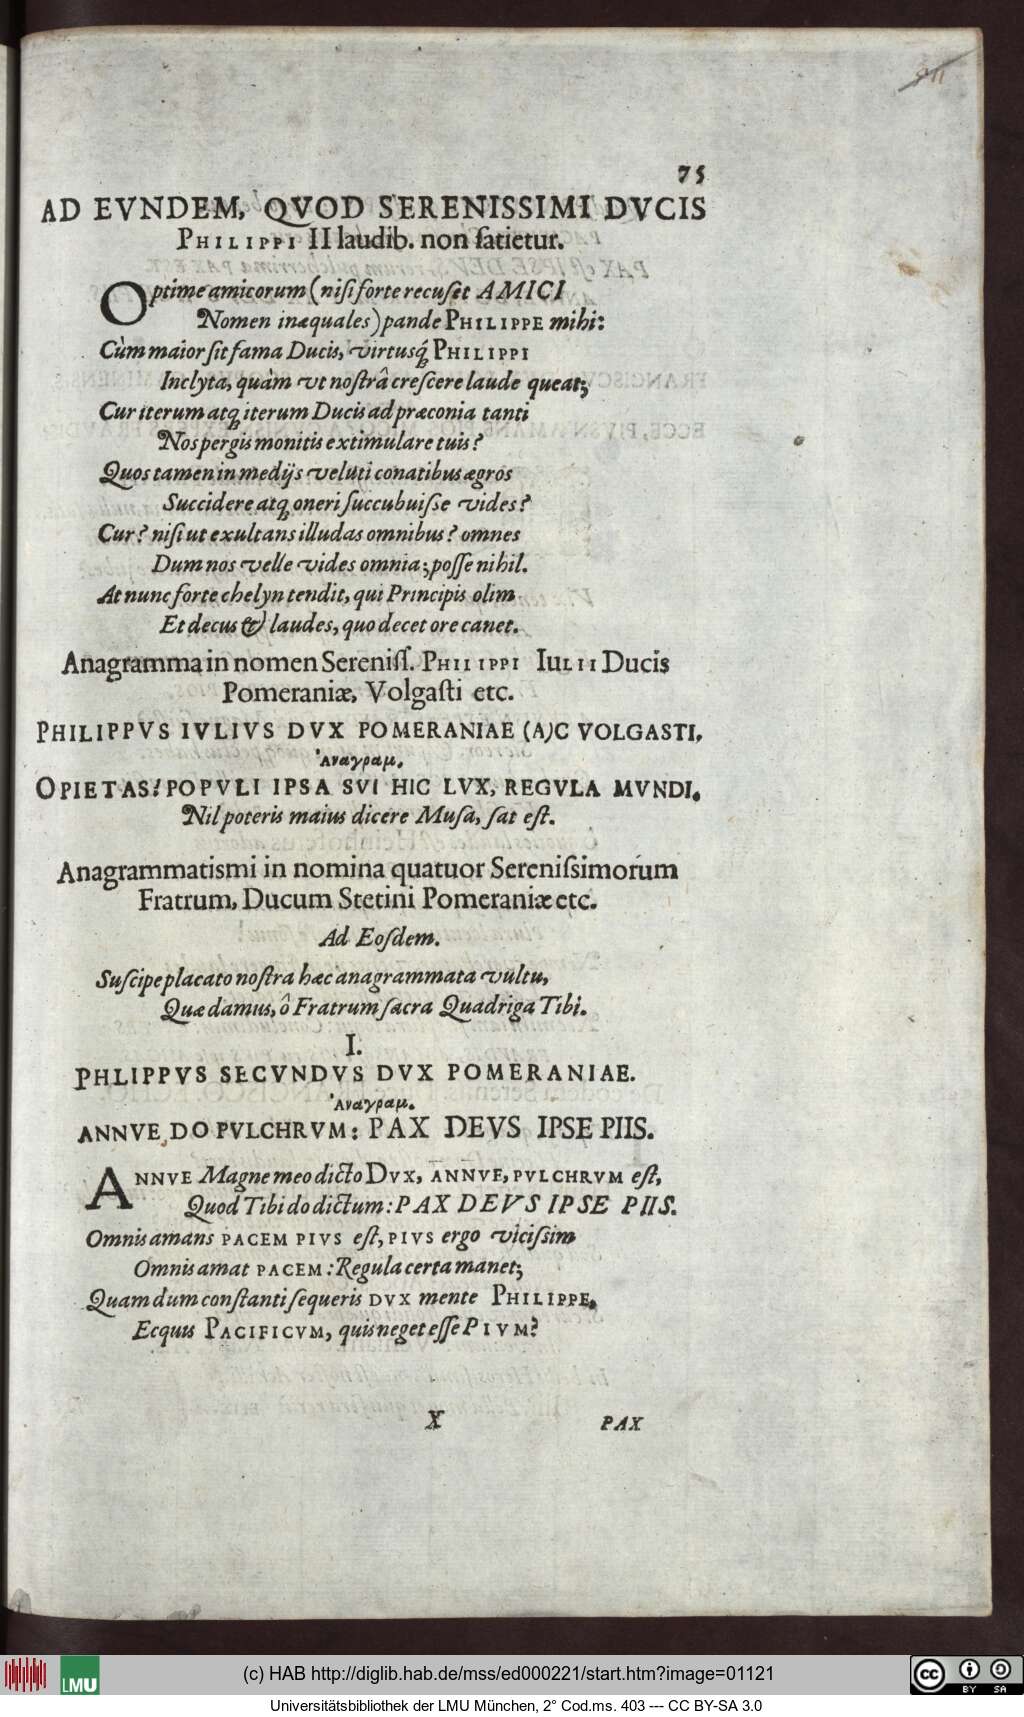 75
AD EVNDEM, QVOD SERENISSIMI DVCIS
PHILIPPI II laudib. non ſatietur.
Optime amicorum (niſi forte recuſet AMICI
Nomen inæquales) pande PHILIPPE mihi:
Cùm maior ſit fama Ducis, virtusq́; PHILIPPI
Inclyta, quàm vt noſtrâ creſcere laude queat;
Cur iterum atq; iterum Ducis ad præconia tanti
Nos pergis monitis extimulare tuis?
Quos tamen in medijs veluti conatibus ægros
Succidere atq; oneri ſuccubuiſse vides?
Cur? niſi ut exultans illudas omnibus? omnes
Dum nos velle vides omnia; poſſe nihil.
At nunc forte chelyn tendit, qui Principis olim
Et decus & laudes, quo decet ore canet.
Anagramma in nomen Sereniſſ. PHILIPPI IULII Ducis
Pomeraniæ, Volgaſti etc.
PHILIPPVS IVLIVS DVX POMERANIAE (A)C VOLGASTI,
Ἀναγραμ.
O PIETAS! POPVLI IPSA SVI HIC LVX, REGVLA MVNDI.
Nil poteris maius dicere Muſa, ſat eſt.
Anagrammatismi in nomina quatuor Sereniſsimorum
Fratrum, Ducum Stetini Pomeraniæ etc.
Ad Eoſdem.
Suſcipe placato noſtra hæc anagrammata vultu,
Quæ damus, ô Fratrum ſacra Quadriga Tibi.
I.
PHLIPPVS SECVNDVS DVX POMERANIAE.
Ἀναγραμ.
ANNVE, DO PVLCHRVM: PAX DEVS IPSE PIIS.
ANNVE Magne meo dicto DVX, ANNVE, PVLCHRVM eſt,
Quod Tibi do dictum: PAX DEVS IPSE PIIS.
Omnis amans PACEM PIVS eſt, PIVS ergo viciſsim
Omnis amat PACEM: Regula certa manet;
Quam dum conſtanti ſequeris DVX mente PHILIPPE,
Ecquis PACIFICVM, quis neget eſſe PIVM?
X PAX
(c) HAB http://diglib.hab.de/mss/ed000221/start.htm?image=01121
LMU
CC BY SA
Universitätsbibliothek der LMU München, 2° Cod.ms. 403 --- CC BY-SA 3.0